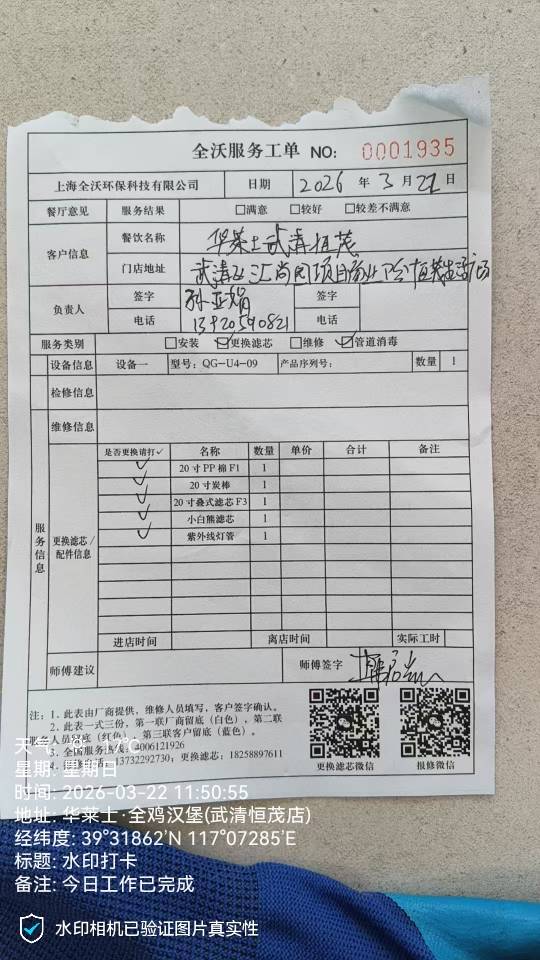 全沃服务工单 NO: 0001935
上海全沃环保科技有限公司 日期 2026 年 3 月 22 日
餐厅意见 服务结果 □满意 □较好 □较差不满意
客户信息 餐饮名称 华莱士武清恒茂
门店地址 武清 汇尚园项目商业 恒茂生活广场
负责人 签字 孙亚娟 签字
电话 13920590821 电话
服务类别 □安装 ☑更换滤芯 □维修 ☑管道消毒
设备信息 设备一 型号: QG-U4-09 产品序列号: 数量 1
检修信息
维修信息
服务信息
更换滤芯/配件信息
是否更换请打✓ 名称 数量 单价 合计 备注
✓ 20寸PP棉F1 1
✓ 20寸炭棒 1
✓ 20寸叠式滤芯F3 1
✓ 小白熊滤芯 1
✓ 紫外线灯管 1
进店时间 离店时间 实际工时
师傅建议 师傅签字
注: 1、此表由厂商提供,维修人员填写,客户签字确认。
2、此表一式三份,第一联厂商留底(白色),第二联
服务人员留底(红色),第三联客户留底(蓝色)。
3、全国服务热线: 4006121926
13732292730; 更换滤芯: 18258897611
更换滤芯微信 报修微信
星期: 星期日
时间: 2026-03-22 11:50:55
地址: 华莱士·全鸡汉堡(武清恒茂店)
经纬度: 39°31862′N 117°07285′E
标题: 水印打卡
备注: 今日工作已完成
水印相机已验证图片真实性